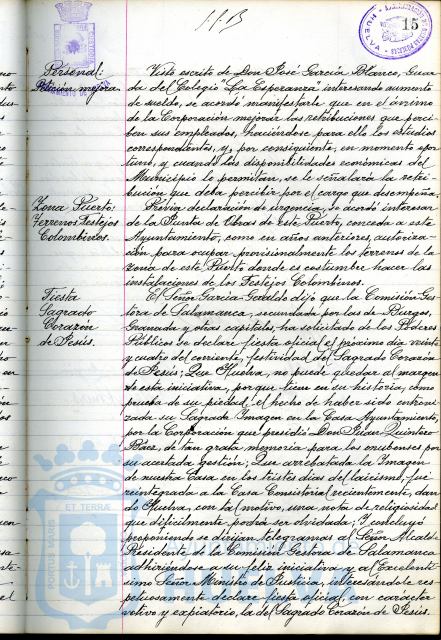 15
HUELVA
Personal:
Petición mejora.
Visto escrito de Don José García Blanco, Guar-
da del Colegio "La Esperanza" interesando aumento
de sueldo, se acordó manifestarle que en el ánimo
de la Corporación mejorar las retribuciones que perci-
ben sus empleados, haciéndose para ello los estudios
correspondientes, y, por consiguiente, en momento opor-
tuno, y cuando las disponibilidades económicas del
Municipio le permitan, se le señalará la retri-
bución que deba percibir por el cargo que desempeña.
Zona Puerto:
Terrenos Festejos
Colombinos.
Previa declaración de urgencia, se acordó interesar
de la Junta de Obras de este Puerto, conceda a este
Ayuntamiento, como en años anteriores, autoriza-
ción para ocupar provisionalmente los terrenos de la
zona de este Puerto donde es costumbre hacer las
instalaciones de los Festejos Colombinos.
Fiesta
Sagrado
Corazón
de Jesús.
El Señor García-Geraldo dijo que la Comisión Ges-
tora de Salamanca, secundada por las de Burgos,
Granada y otras capitales, ha solicitado de los Poderes
Públicos se declare fiesta oficial el próximo día veinte
y cuatro del corriente, festividad del Sagrado Corazón
de Jesús; Que Huelva, no puede quedar al margen
de esta iniciativa, porque tiene en su historia, como
prueba de su piedad, el hecho de haber sido entroni-
zada su Sagrada Imagen en la Casa Ayuntamiento,
por la Corporación que presidió Don Juan Quintero
Báez, de tan grata memoria para los onubenses por
su acertada gestión; Que arrebatada la Imagen
de nuestra Casa en los tristes días del laicismo, fué
reintegrada a la Casa Consistorial recientemente, dan-
do Huelva, con tal motivo, una nota de religiosidad
que difícilmente podrá ser olvidada; Y concluyó
proponiendo se dirijan telegramas al Señor Alcalde
Presidente de la Comisión Gestora de Salamanca
adhiriéndose a su feliz iniciativa y al Excelentí-
simo Señor Ministro de Justicia, interesándole res-
petuosamente declare fiesta oficial, con carácter
votivo y expiatorio, la del Sagrado Corazón de Jesús.
PORTUS MARIS ET TERRAE